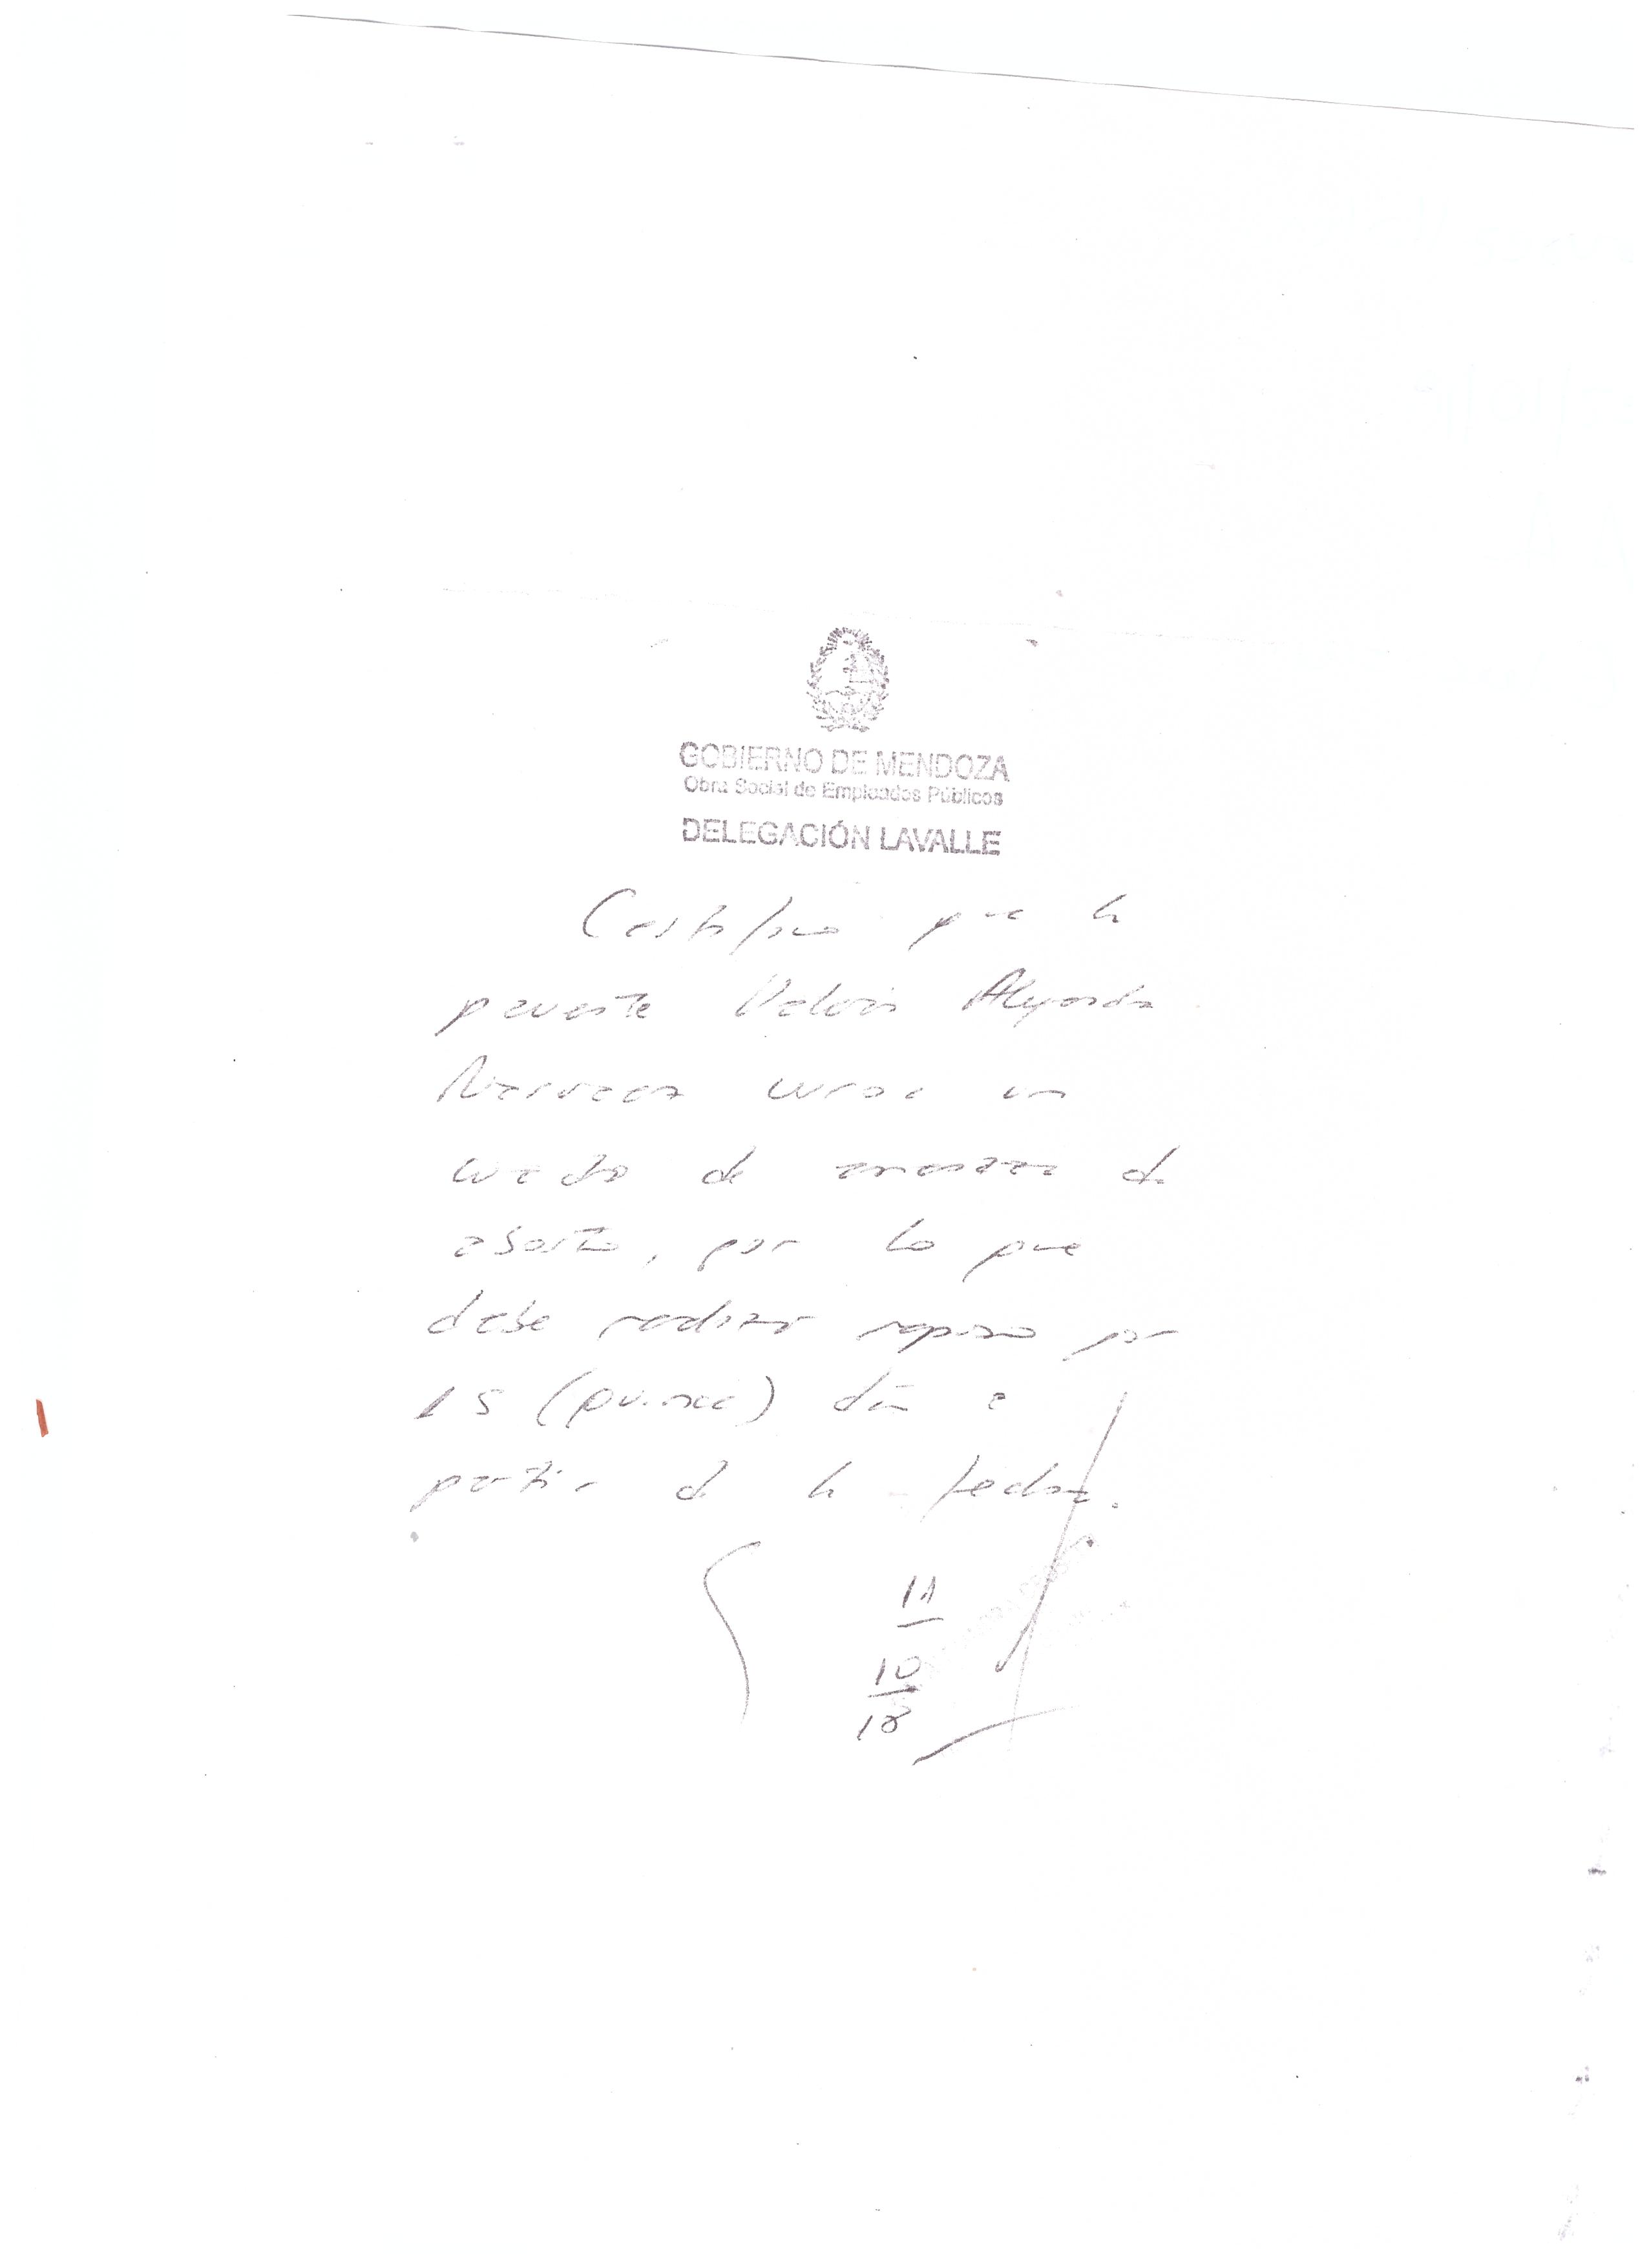 GOBIERNO DE MENDOZA
Obra Social de Empleados Públicos
DELEGACIÓN LAVALLE
Certifico que la
paciente Alejandra
cursa un
cuadro de amenaza de
aborto, por lo que
debe realizar reposo por
15 (quince) días a
partir de la fecha.
11
10
18